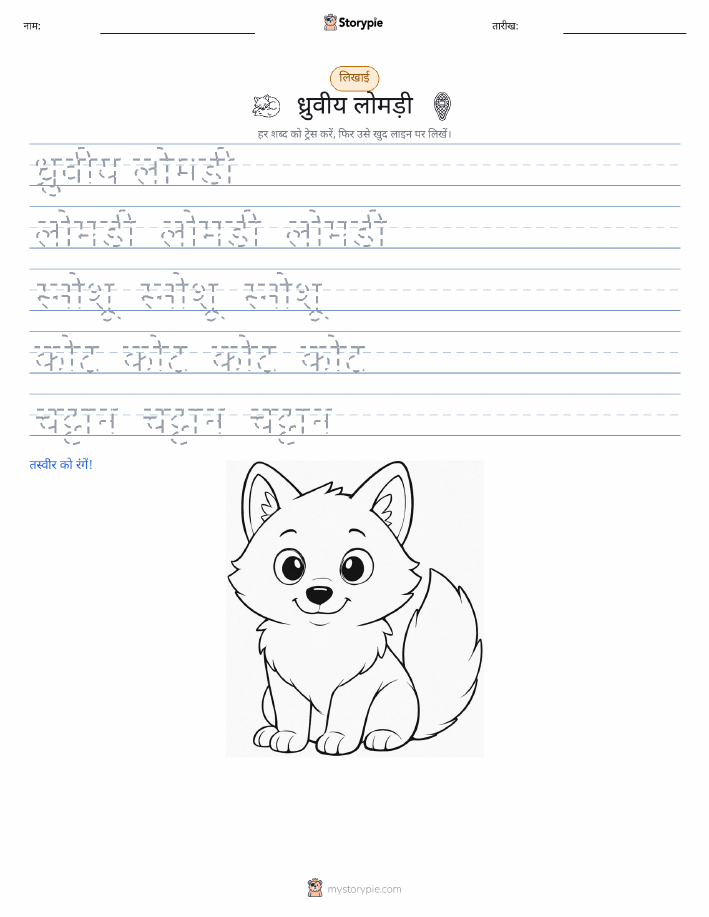 नाम:
Storypie
तारीख:
लिखाई
ध्रुवीय लोमड़ी
हर शब्द को ट्रेस करें, फिर उसे खुद लाइन पर लिखें।
ध्रुवीय लोमड़ी
लोमड़ी लोमड़ी लोमड़ी
स्नोशू स्नोशू स्नोशू
कोट कोट कोट कोट
चट्टान चट्टान चट्टान
तस्वीर को रंगें!
mystorypie.com